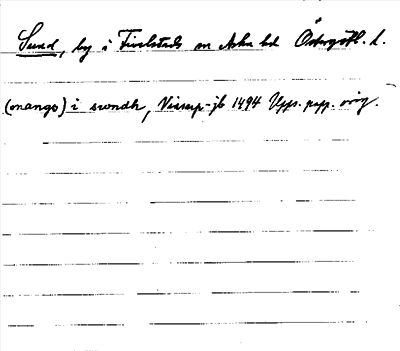 Sund, by i Fivelstads sn Aska hd Östergötl. l.
(mango) i swndh, Vissep-jb 1494 Upps. papp. orig.